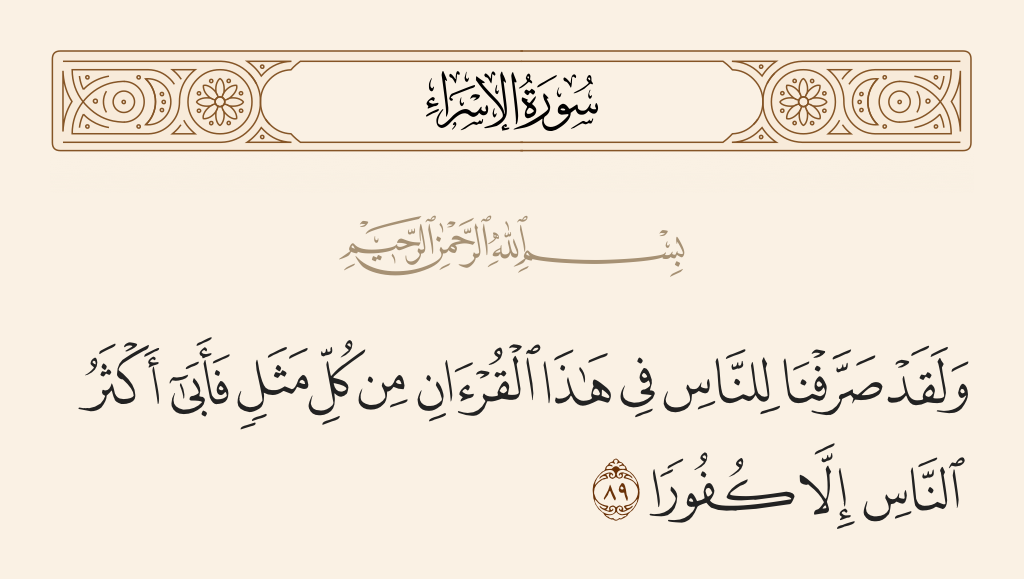 سُورَةُ الإِسْرَاءِ
بِسْمِ ٱللَّهِ ٱلرَّحْمَٰنِ ٱلرَّحِيمِ
وَلَقَدْ صَرَّفْنَا لِلنَّاسِ فِى هَٰذَا ٱلْقُرْءَانِ مِن كُلِّ مَثَلٍ فَأَبَىٰٓ أَكْثَرُ
ٱلنَّاسِ إِلَّا كُفُورًا ٨٩